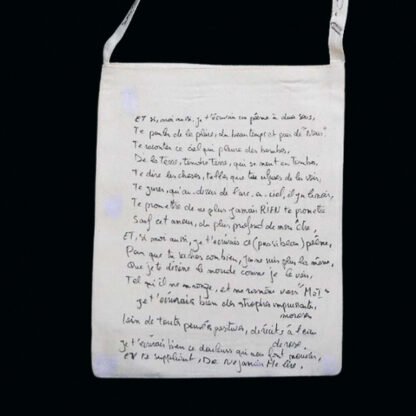 ET si, moi aussi, je t'écrivais un poème à deux sous,
Te parler de la pluie, du beau temps et pas de "Nous".
Te raconter ce ciel qui pleure des bombes,
De la Terre, tendre Terre, qui se meurt en Tombe,
Te dire les choses, telles que tu refuses de les voir,
Te jurer, qu'au dessus de l'arc-en-ciel, il y a l'espoir,
Te promettre de ne plus jamais RIEN te promettre
Sauf cet amour, du plus profond de mon être,
ET, si moi aussi, je t'écrivais ce (pas si beau) poème,
Pour que tu saches combien, je ne suis plus la même,
Que je te dévoile le monde comme je le vois,
Tel qu'il me mange, et me ramène vers "MOI"
je t'écrirais bien des strophes
moroses
loin de toute pensée, à l'eau
de rose.
je t'écrirais bien ce douleurs qui nous font
ET Te suppliant, De Ne jamais Me lire.